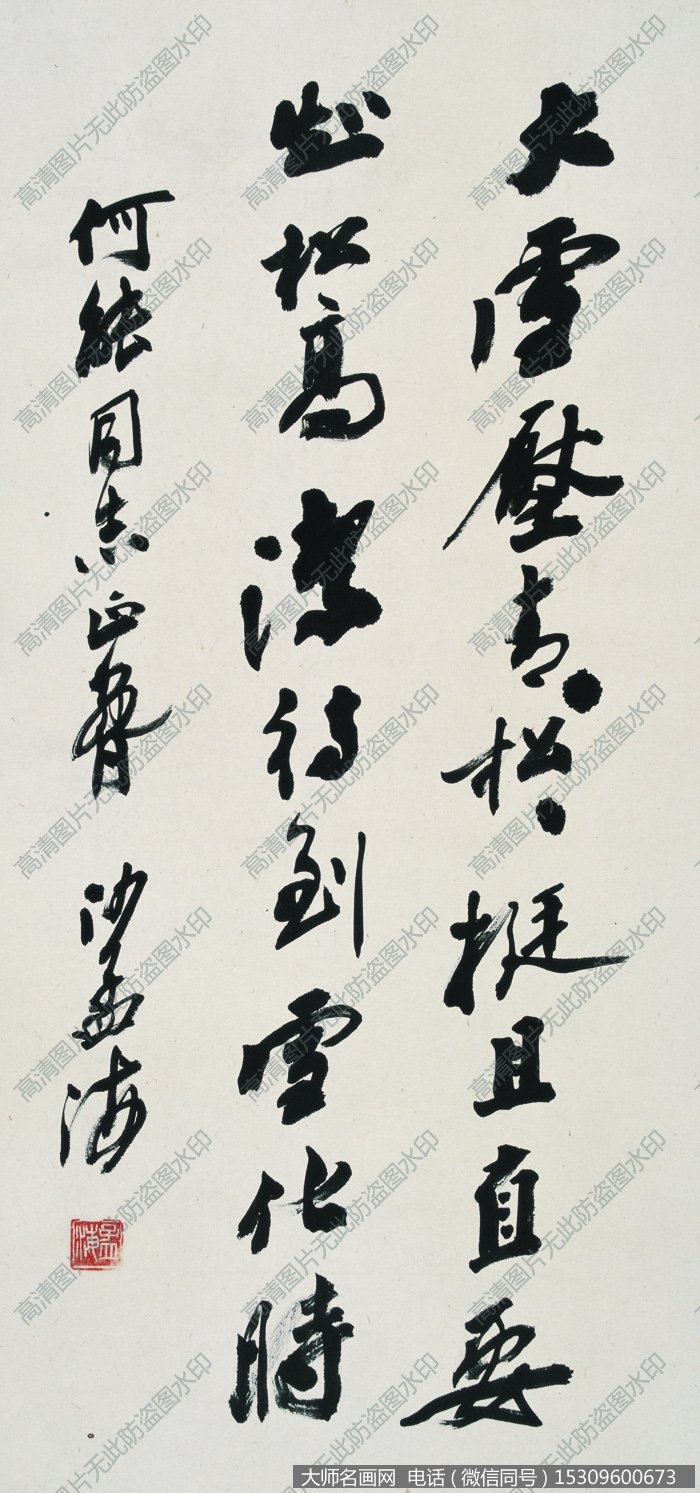 大雪壓青、松、挺且直要
知松高潔待到雪化時
何能同志正
沙孟海
孟海
高清图片无此防盗图水印
大师名画网 电话（微信同号）15309600673